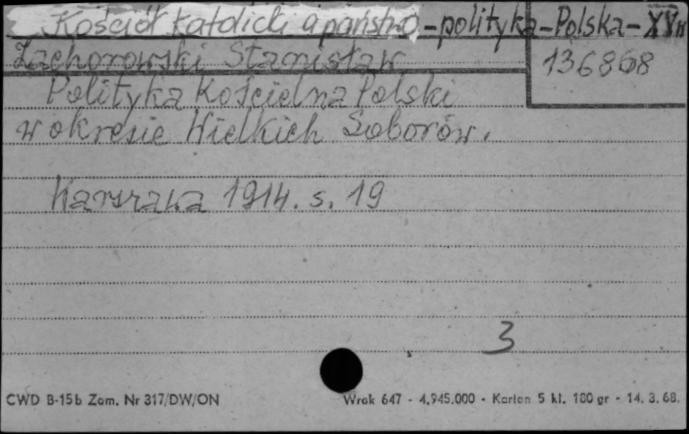 Kościół katolicki a państwo - polityka - Polska - XV w
Zachorowski Stanisław
136868
Polityka Kościelna Polski
w okresie Wielkich Soborów.
Warszawa 1914. s. 19
3
CWD B-15b Zam. Nr 317/DW/ON
Wrak 647 - 4.945.000 - Karton 5 kl. 180 gr - 14. 3. 68.